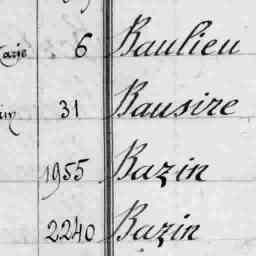 6 Baulieu
31 Bausire
1955 Bazin
2240 Bazin